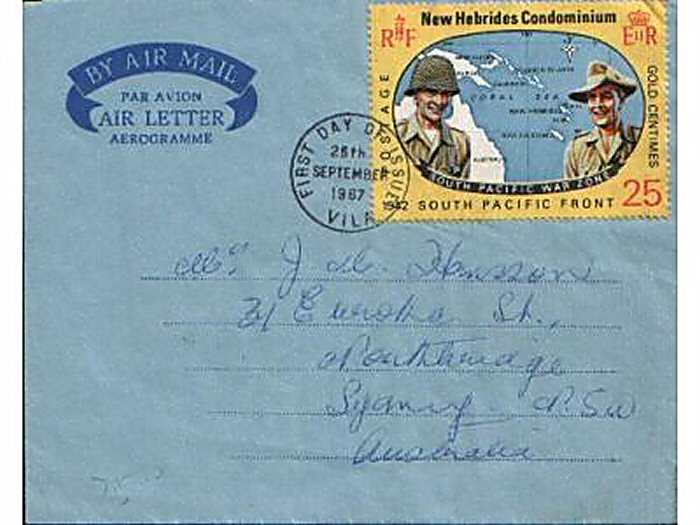 BY AIR MAIL
PAR AVION
AIR LETTER
AEROGRAMME
New Hebrides Condominium
RF
EIIR
POSTAGE
GOLD CENTIMES
CORAL SEA
SOUTH PACIFIC WAR ZONE
1942 SOUTH PACIFIC FRONT 25
FIRST DAY OF ISSUE
26th
SEPTEMBER
1967
VILA
J M.
31 Euroka St.,
Northbridge
Sydney N.S.W
Australia